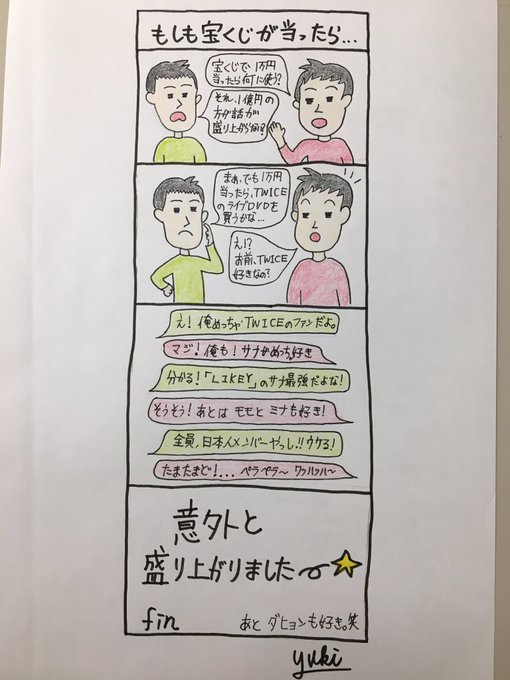 もしも宝くじが当ったら...
宝くじで、1万円
当ったら何に使う?
それ、1億円の
方が話が
盛り上がらない?
まぁ、でも1万円
当ったら、TWICE
のライブDVDを
買うかな...
え!?
お前、TWICE
好きなの?
え!俺めっちゃTWICEのファンだよ。
マジ!俺も!サナがめっち好き
分かる!「LIKEY」のサナ最強だよな!
そうそう!あとはモモとミナも好き!
全員、日本人メンバーやっし!!ウケる!
たまたまど!...ペラペラ〜ワハハハ〜
意外と
盛り上がりました
fin
あとダヒョンも好き。笑
yuki